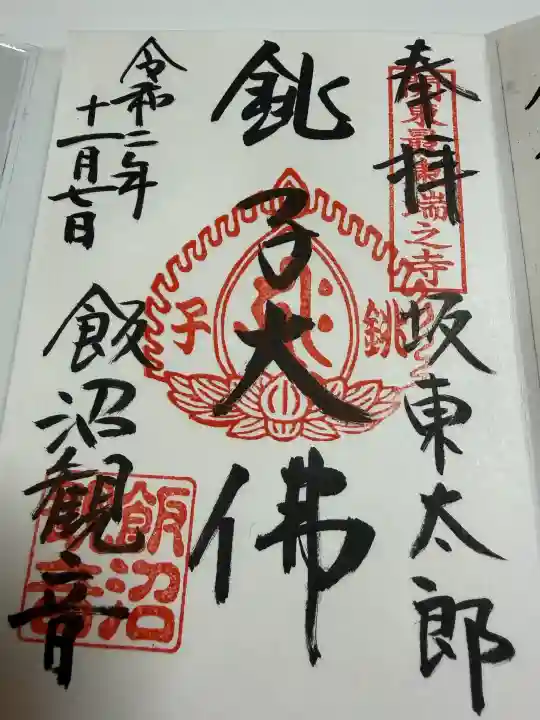 奉拝
坂東太郎
関東最東端之寺
銚子大佛
銚子
令和二年
十一月七日
飯沼観音
飯沼観音